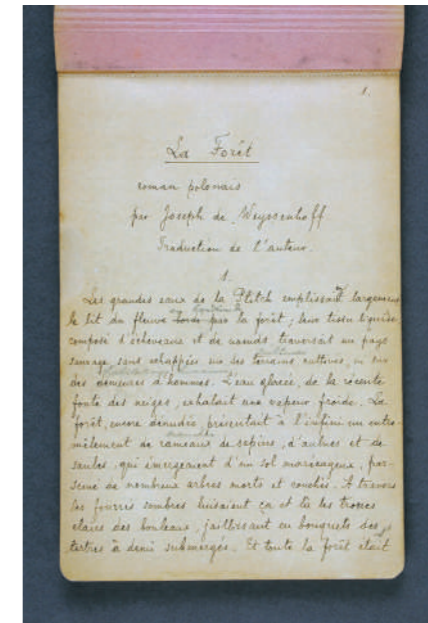 1.
La Forêt
roman polonais
par Joseph de Weyssenhoff
Traduction de l'auteur.
1.
Les grandes eaux de la Ptitch emplissaient largement
le lit du fleuve par la forêt ; leur tissu liquide
composé d'écheveaux et de nœuds traversait un pays
sauvage sans échappées sur des terrains cultivés, ni sur
des demeures d'hommes. L'eau glacée, de la récente
fonte des neiges, exhalait une vapeur froide. La
forêt, encore dénudée, présentait à l'infini un entre-
mêlement de rameaux de sapins, d'aulnes et de
saules, qui émergeaient d'un sol marécageux, par-
semé de nombreux arbres morts et couchés. A travers
les fourrés sombres luisaient ça et là les troncs
clairs des bouleaux, jaillissant en bouquets des
tertres à demi submergés. Et toute la forêt était